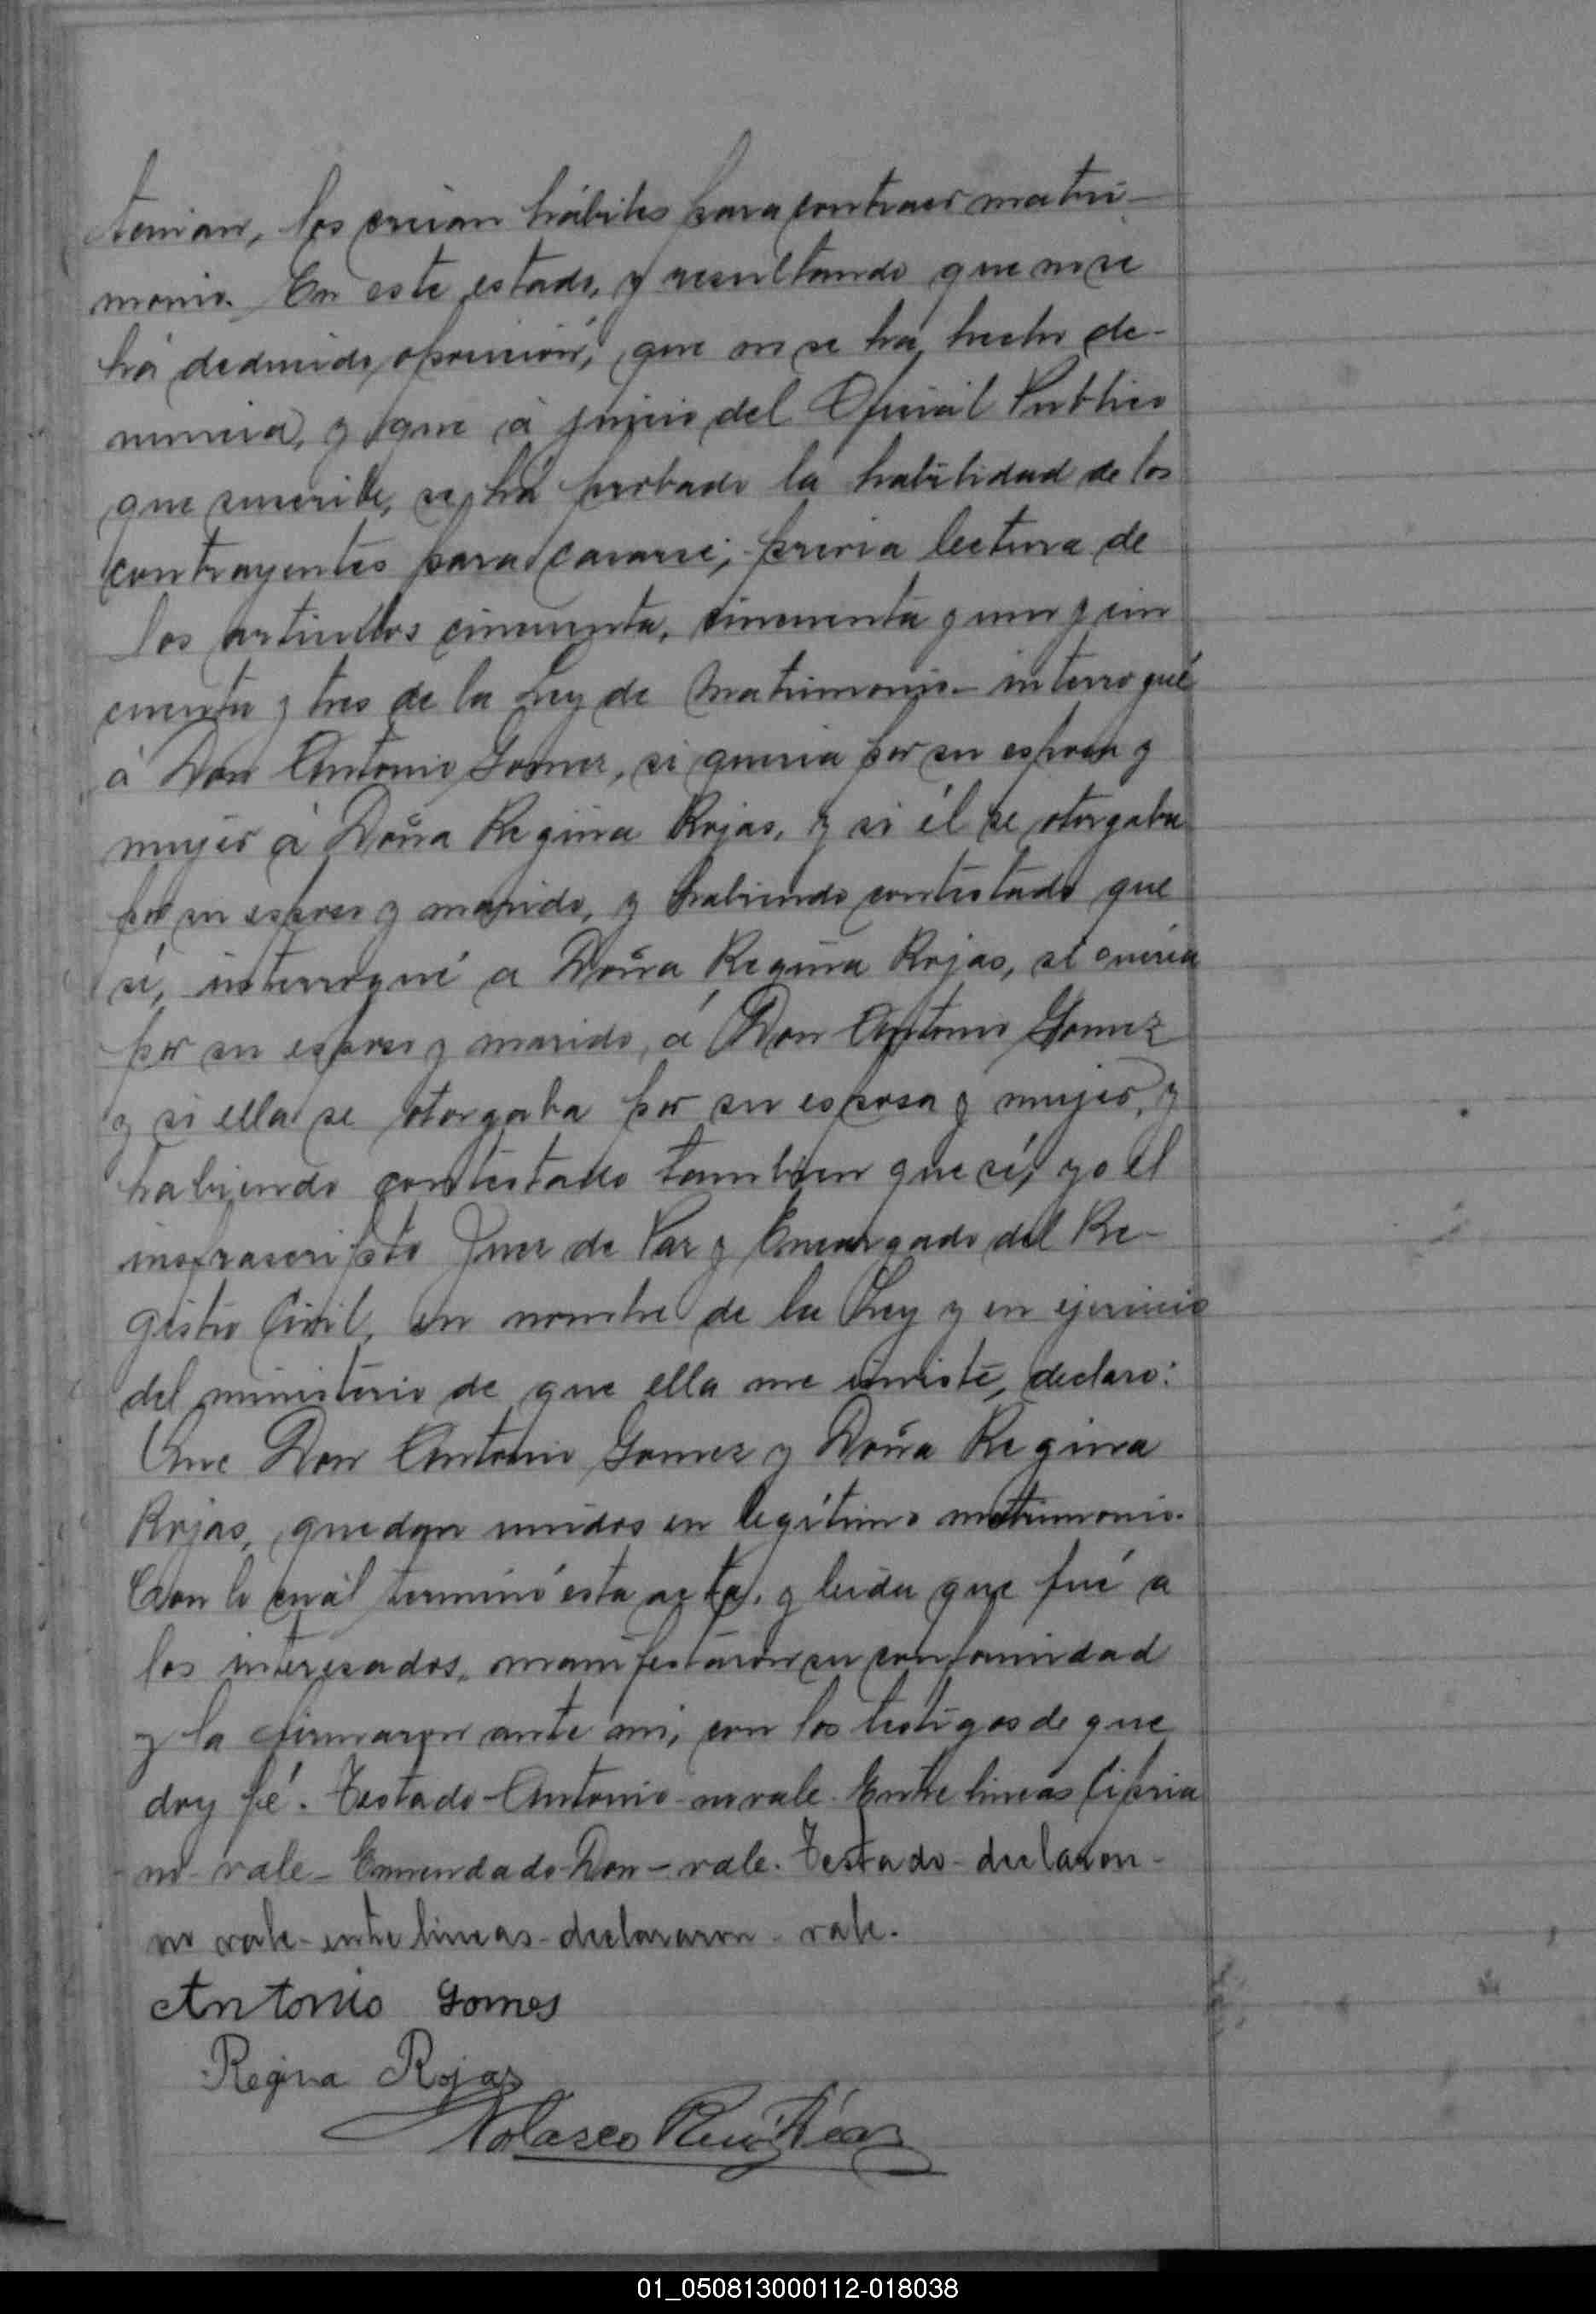 tenian, los creian hábiles para contraer matri-
monio. En este estado, y resultando que no se
há deducido oposición, que no se há hecho de-
nuncia, y que á juicio del Oficial Publico
que suscribe, se há probado la habilidad de los
contrayentes para casarse; previa lectura de
los articulos cincuenta, cincuenta y uno y cin
cuenta y tres de la Ley de Matrimonio- interrogué
á Don Antonio Gomez, si queria por su esposa y
mujer á Doña Regina Rojas, y si él se otorgaba
por su esposo y marido, y habiendo contestado que
sí, interrogué a Doña Regina Rojas, si queria
por su esposo y marido, á Don Antonio Gomez
y si ella se otorgaba por su esposa y mujer, y
habiendo contestado tambien que sí, yo el
infrascripto Juez de Paz y Encargado del Re-
gistro Civil, en nombre de la Ley y en ejercicio
del ministerio de que ella me inviste, declaro:
Que Don Antonio Gomez y Doña Regina
Rojas, quedan unidos en legítimo matrimonio.
Con lo cuál terminó esta acta, y leida que fué a
los interesados, manifestaron su conformidad
y la firmaron ante mi, con los testigos de que
doy fé. Testado-Antonio-no vale. Entre lineas Cipria
no- vale- Enmendado-Don-vale. Testado-declaron-
no vale-entre lineas-declararon-vale.
Antonio Gomes
Regina Rojas
Nolasco Ruiz Díaz
01_050813000112-018038